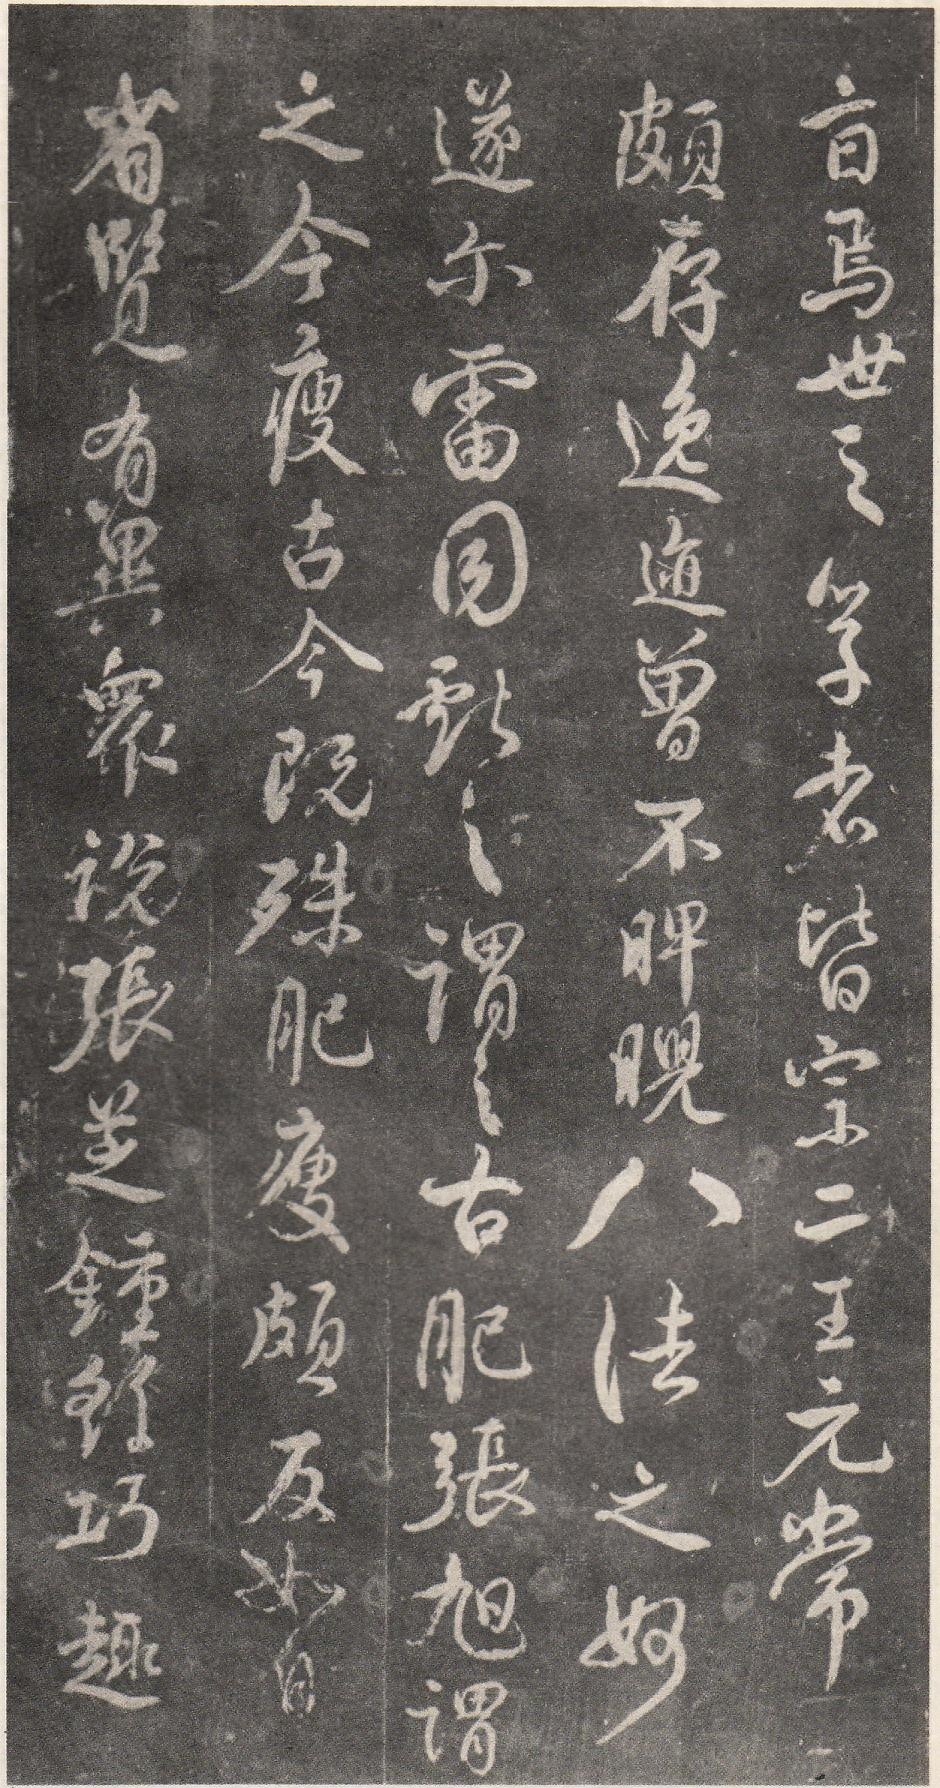 焉世之學者皆宗二王元常
頗存逸遒曾不睥睨八法之妙
遂尔雷同獻之謂之古肥張旭謂
之今瘦古今既殊肥瘦頗反如自
省覽有異衆說張芝鍾繇巧趣